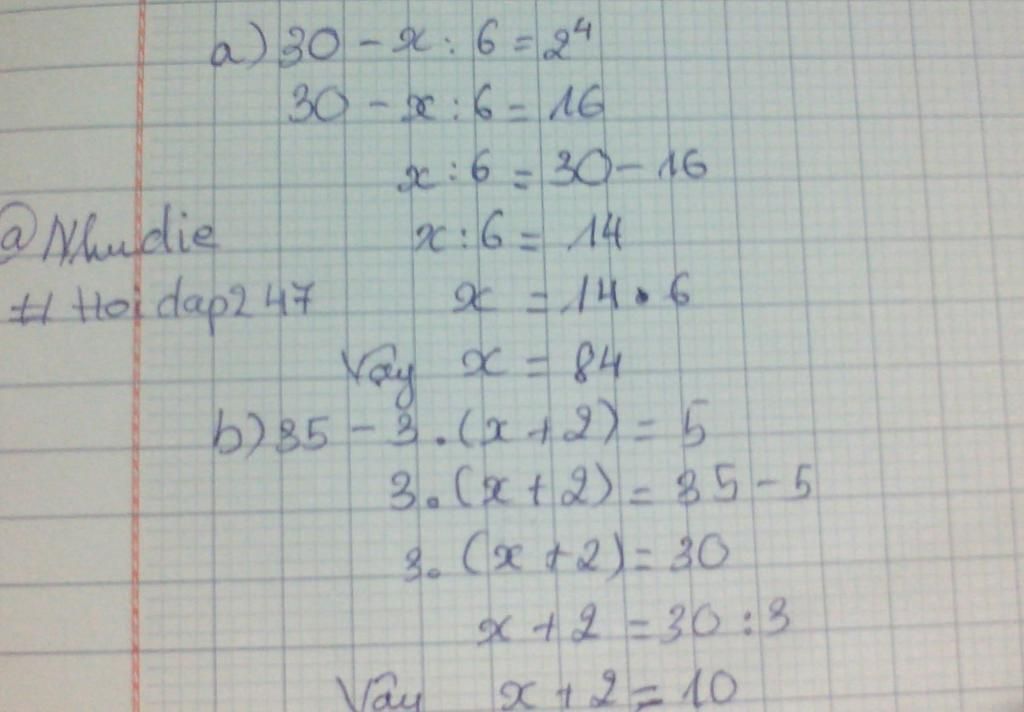 a) 30 - x : 6 = 2⁴
30 - x : 6 = 16
x : 6 = 30 - 16
@Nhudie
x : 6 = 14
# Hoidap247
x = 14 . 6
Vậy x = 84
b) 35 - 3 . (x + 2) = 5
3 . (x + 2) = 35 - 5
3 . (x + 2) = 30
x + 2 = 30 : 3
Vậy x + 2 = 10